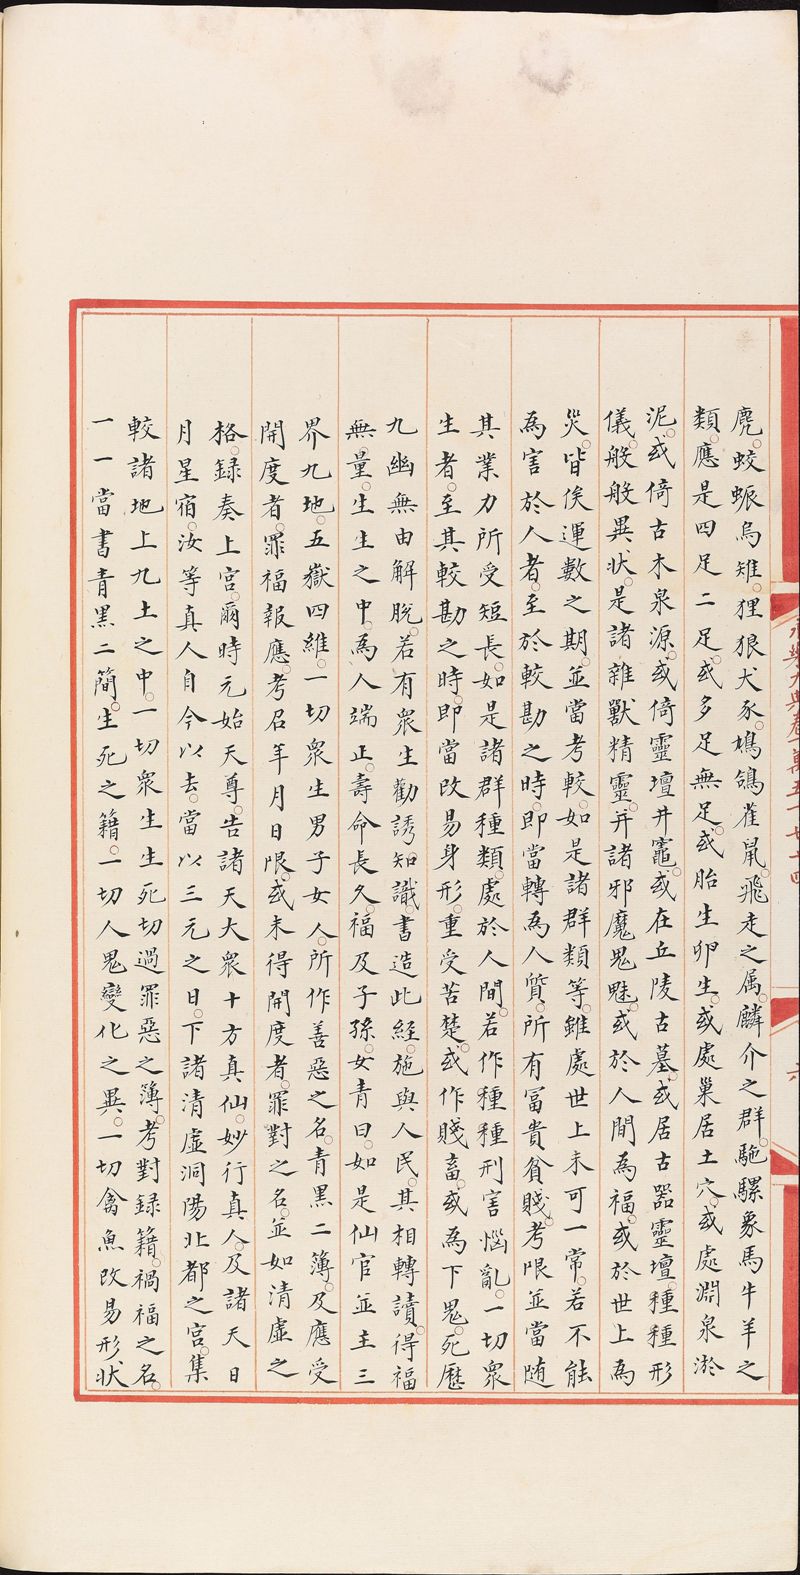 麂。蛟蜃烏雉。狸狼犬豕。鳩鴿雀鼠。飛走之属。麟介之群。駞騾象馬牛羊之
類。應是四足二足。或多足無足。或胎生卵生。或處巢居土穴。或處淵泉淤
泥。或倚古木泉源。或倚靈壇井竈。或在丘陵古墓。或居古器靈壇。種種形
儀。般般異状。是諸雜獸精靈。并諸邪魔鬼魅。或於人間為福。或於世上為
災。皆俟運數之期。並當考較。如是諸群類等。雖處世上未可一常。若不能
為害於人者。至於較勘之時。即當轉為人質。所有冨貴貧賤。考限並當随
其業力所受短長。如是諸群種類。處於人間。若作種種刑害惱亂。一切衆
生者。至其較勘之時。即當改易身形。重受苦楚。或作賤畜。或為下鬼。死歷
九幽無由解脫。若有衆生勸誘知識。書造此經。施與人民。其相轉讀。得福
無量。生生之中。為人端正。壽命長久。福及子孫。女青曰。如是仙官並主三
界九地。五嶽四維。一切衆生男子女人。所作善惡之名。青黑二簿。及應受
開度者。罪福報應。考召年月日限。或未得開度者。罪對之名。並如清虚之
格。録奏上宫。爾時元始天尊。告諸天大衆十方真仙。妙行真人。及諸天日
月星宿。汝等真人自今以去。當以三元之日。下諸清虚洞陽北都之宫。集
較諸地上九土之中。一切衆生生死切過罪惡之簿。考對録籍。禍福之名。
一一當書青黑二簡。生死之籍。一切人鬼變化之異。一切禽魚改易形状
永樂大典卷一萬五千
六